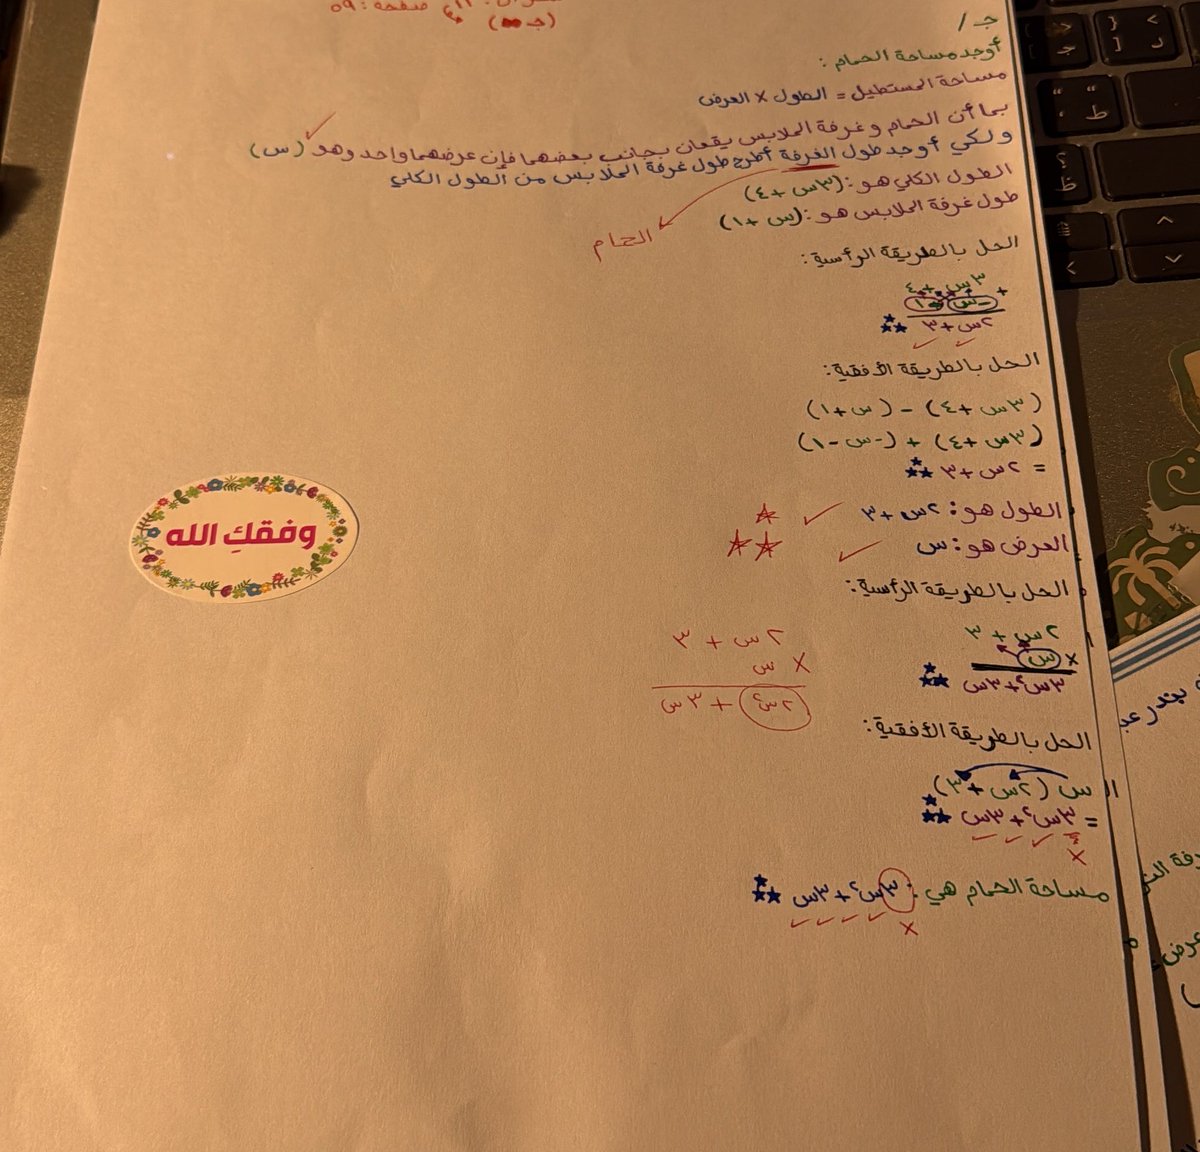 صفحة: ٥٩
(جـ)
جـ /
أوجد مساحة الحمام :
مساحة المستطيل = الطول × العرض
بما أن الحمام وغرفة الملابس يقعان بجانب بعضهما فإن عرضهما واحد وهو (س)
ولكي أوجد طول الغرفة أطرح طول غرفة الملابس من الطول الكلي
الطول الكلي هو: (٣س + ٤)
طول غرفة الملابس هو: (س + ١)
الحمام
الحل بالطريقة الرأسية:
٣س + ٤
+ -س - ١
٢س + ٣
الحل بالطريقة الأفقية:
(٣س + ٤) - (س + ١)
(٣س + ٤) + (-س - ١)
= ٢س + ٣
الطول هو: ٢س + ٣
العرض هو: س
وفقكِ الله
الحل بالطريقة الرأسية:
٢س + ٣
× س
٣س² + ٣س
٢س + ٣
× س
٢س² + ٣س
الحل بالطريقة الأفقية:
س (٢س + ٣)
= ٣س² + ٣س
مساحة الحمام هي: ٣س² + ٣س